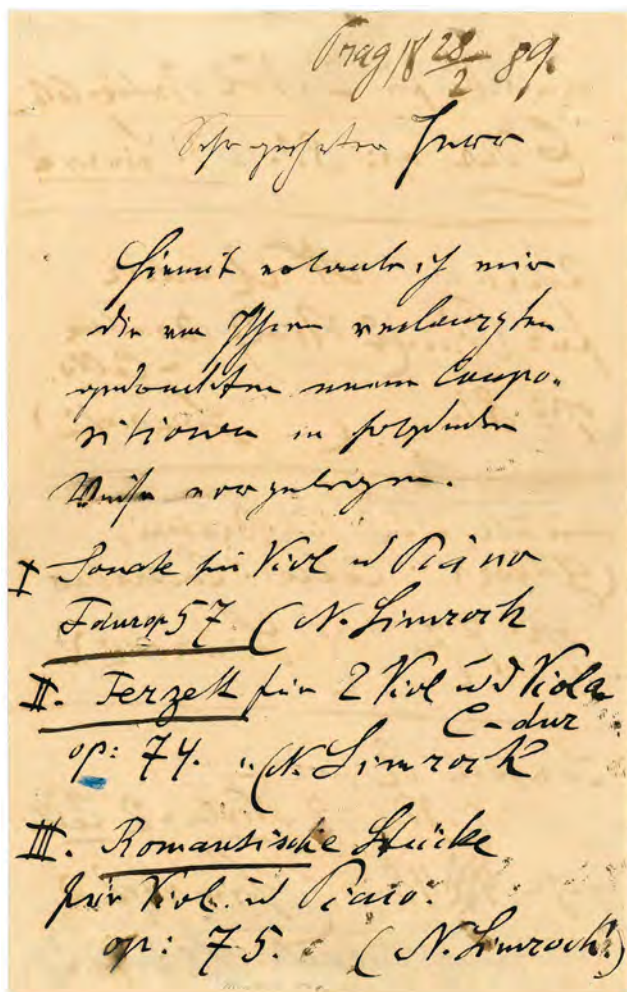 Prag 18 28/2 89.
Sehr geehrter Herr
Hiemit erlaube ich mir
die von Ihnen verlangten
gedruckten neuen Compo-
sitionen in folgender
Weise vorzulegen.
I Sonate für Viol ud Piano
F dur op 57. (N. Simrock
II. Terzett für 2 Viol ud Viola
C-dur
op: 74. (N. Simrock
III. Romantische Stücke
für Viol. ud Piano.
op: 75. (N. Simrock.)